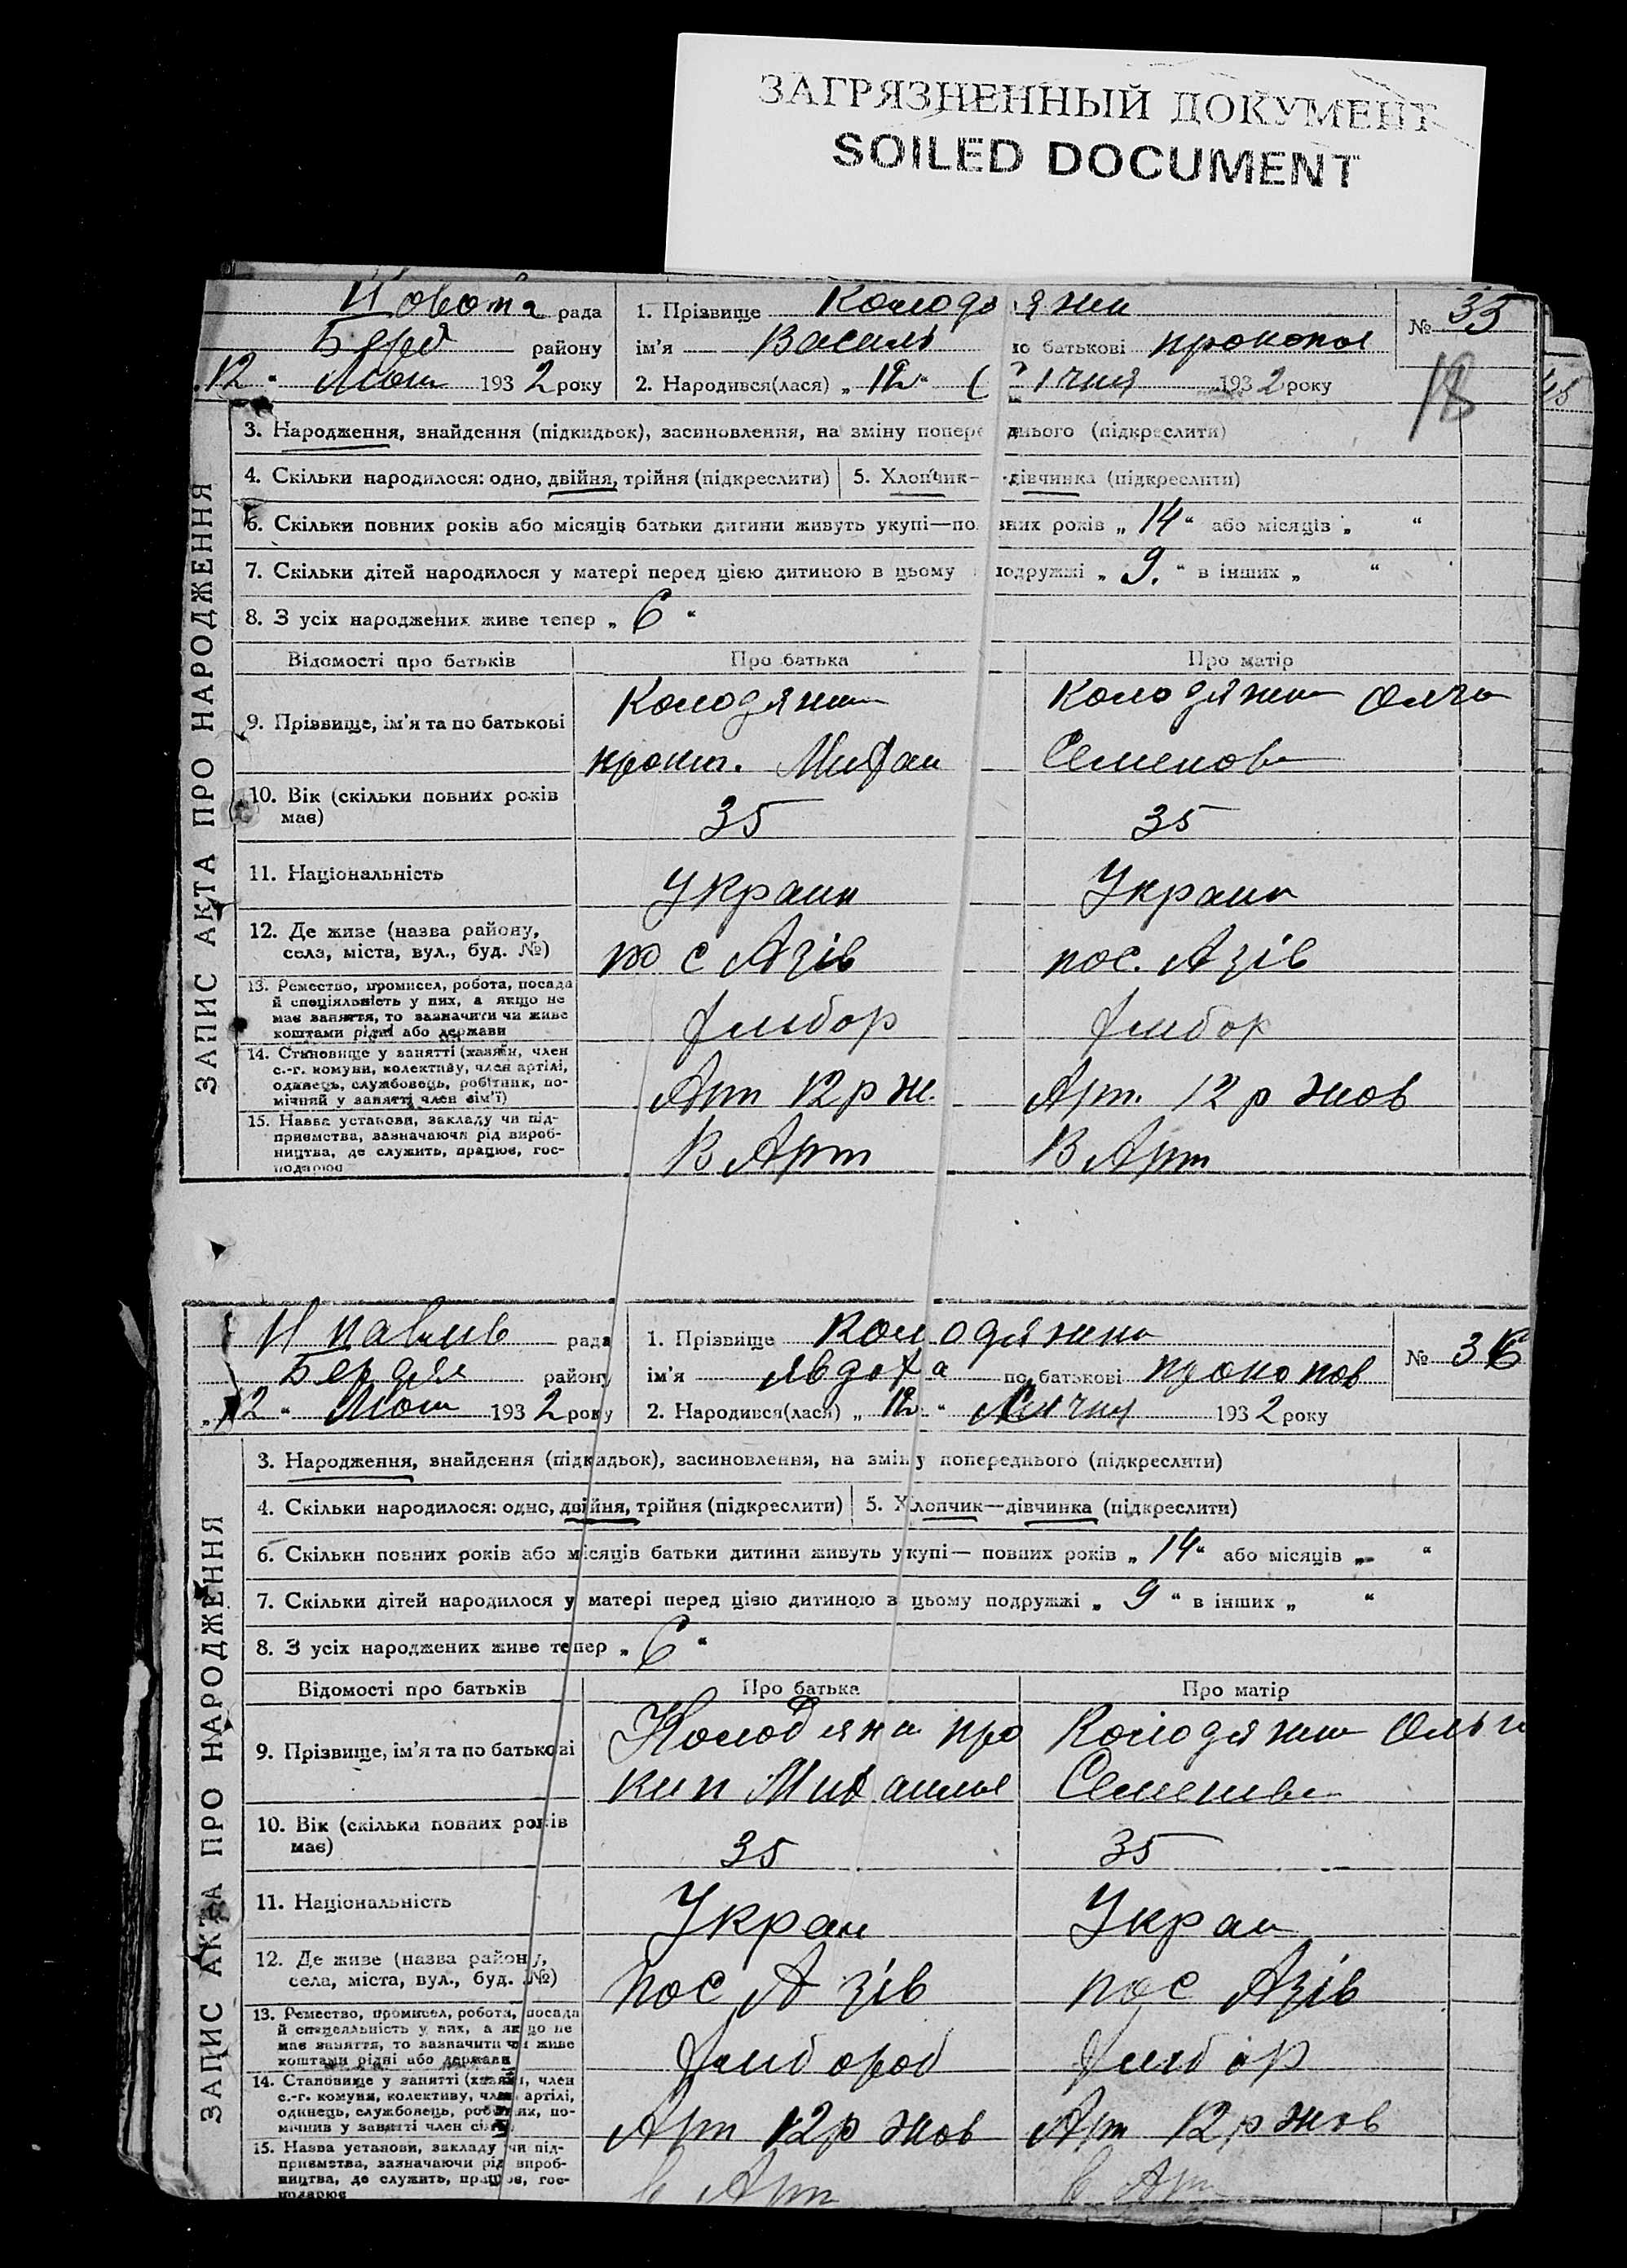 ЗАГРЯЗНЕННЫЙ ДОКУМЕНТ
SOILED DOCUMENT
рада
1. Прізвище Колодяжн
№ 35
Берд району
ім'я Василь по батькові прокопов
12 Лют 1932 року
2. Народився(лася) „ 12 " січня 1932 року
18
ЗАПИС АКТА ПРО НАРОДЖЕННЯ
3. Народження, знайдення (підкидьок), засиновлення, на зміну попереднього (підкреслити)
4. Скільки народилося: одно, двійня, трійня (підкреслити) 5. Хлопчик—дівчинка (підкреслити)
6. Скільки повних років або місяців батьки дитини живуть укупі—повних років „ 14 " або місяців „ "
7. Скільки дітей народилося у матері перед цією дитиною в цьому подружжі „ 9. " в інших „ "
8. З усіх народжених живе тепер „ 6 "
Відомості про батьків Про батька Про матір
9. Прізвище, ім'я та по батькові
Колодяжн Колодяжн Ольга
Семенов
10. Вік (скільки повних років має) 35 35
11. Національність Україн Україн
12. Де живе (назва району, села, міста, вул., буд. №) пос Азів пос. Азів
13. Ремество, промисел, робота, посада й спеціяльність у них, а якщо не має заняття, то зазначити чи живе коштами рідні або держави
14. Становище у занятті (хазяїн, член с.-г. комуни, колективу, член артілі, одинець, службовець, робітник, помічний у занятті член сім'ї) Арт 12 р ж. Арт. 12 р жов
15. Назва установи, закладу чи підприємства, зазначаючи рід виробництва, де служить, працює, господарює В Арт В Арт
рада
1. Прізвище Колодяжна
№ 36
Бердян району
ім'я Явдоха по батькові Прокопов
„ 12 " Лют 1932 року
2. Народився(лася) „ 12 " Січня 1932 року
ЗАПИС АКТА ПРО НАРОДЖЕННЯ
3. Народження, знайдення (підкидьок), засиновлення, на зміну попереднього (підкреслити)
4. Скільки народилося: одно, двійня, трійня (підкреслити) 5. Хлопчик—дівчинка (підкреслити)
6. Скільки повних років або місяців батьки дитини живуть укупі— повних років „ 14 " або місяців „ "
7. Скільки дітей народилося у матері перед цією дитиною в цьому подружжі „ 9 " в інших „ "
8. З усіх народжених живе тепер „ 6 "
Відомості про батьків Про батька Про матір
9. Прізвище, ім'я та по батькові
Колодяжн про Колодяжн Ольга
коп Семенов
10. Вік (скільки повних років має) 35 35
11. Національність Украи Украи
12. Де живе (назва району, села, міста, вул., буд. №) пос Азів пос Азів
13. Ремество, промисел, робота, посада й спеціяльність у них, а якщо не має заняття, то зазначити чи живе коштами рідні або держави
14. Становище у занятті (хазяїн, член с.-г. комуни, колективу, член артілі, одинець, службовець, робітник, помічний у занятті член сім'ї) Арт 12 р жов Арт 12 р жов
15. Назва установи, закладу чи підприємства, зазначаючи рід виробництва, де служить, працює, господарює в Арт в Арт